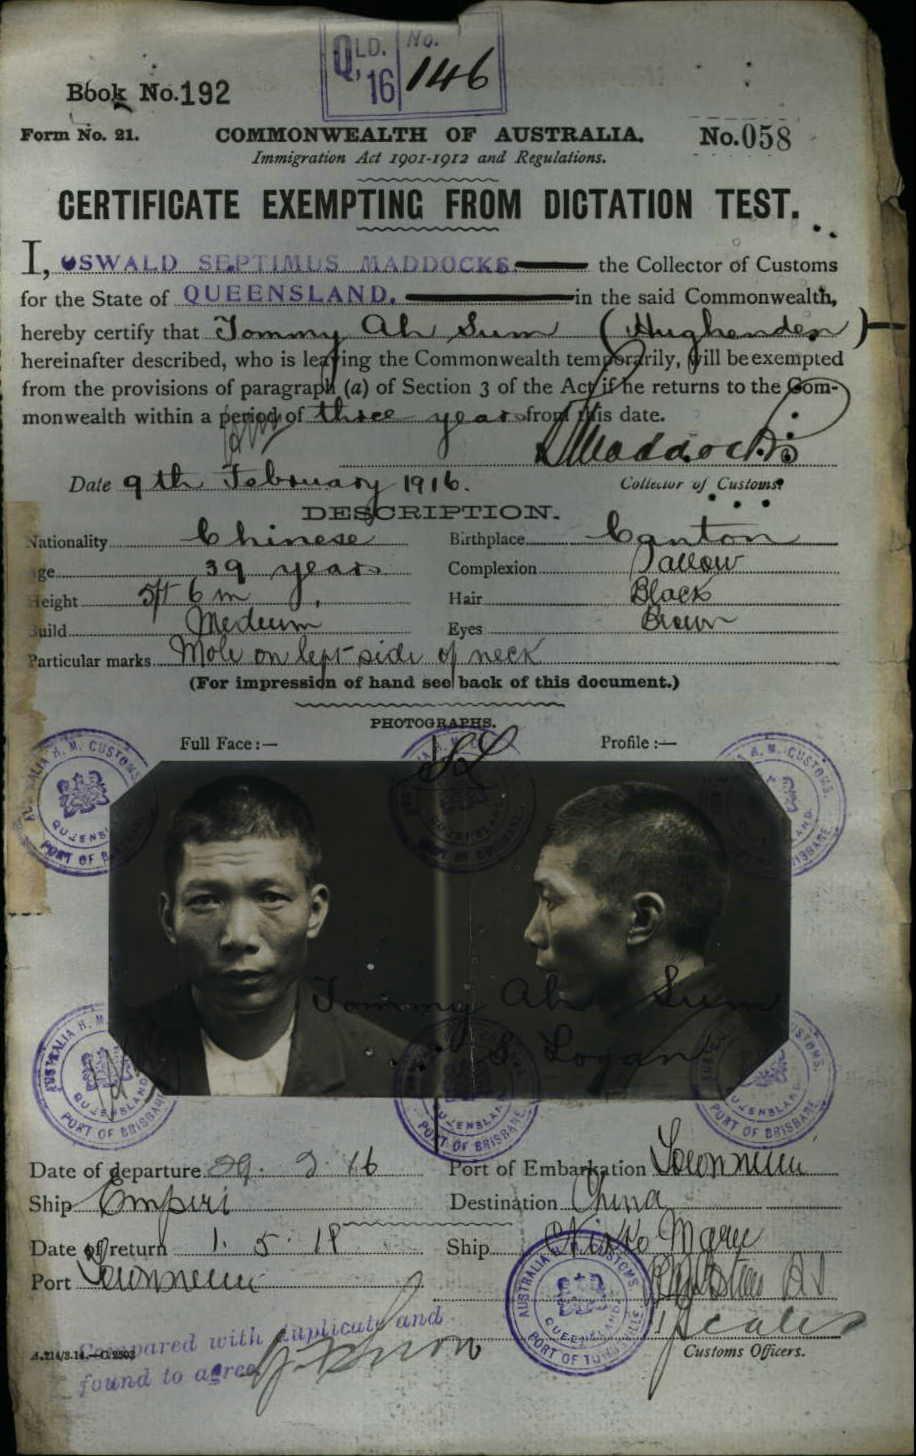 QLD. No.
16 146
Book No. 192
Form No. 21. COMMONWEALTH OF AUSTRALIA. No. 058
Immigration Act 1901-1912 and Regulations.
CERTIFICATE EXEMPTING FROM DICTATION TEST.
I, OSWALD SEPTIMUS MADDOCKS the Collector of Customs
for the State of QUEENSLAND. in the said Commonwealth,
hereby certify that Tommy Ah Sum (Hughenden)
hereinafter described, who is leaving the Commonwealth temporarily, will be exempted
from the provisions of paragraph (a) of Section 3 of the Act if he returns to the Com-
monwealth within a period of three years from this date.
Maddocks
Date 9th February 1916. Collector of Customs.
DESCRIPTION.
Nationality Chinese Birthplace Canton
Age 39 years Complexion Sallow
Height 5ft 6 in Hair Black
Build Medium Eyes Brown
Particular marks Mole on left side of neck
(For impression of hand see back of this document.)
PHOTOGRAPHS.
Full Face:— Profile:—
AUSTRALIA H. M. CUSTOMS QUEENSLAND PORT OF BRISBANE
Tommy Ah Sum
S Logan
Date of departure 29. 2. 16 Port of Embarkation Townsville
Ship Empire Destination China
Date of return 1. 5. 18 Ship Nikko Maru
Port Townsville
AUSTRALIA H. M. CUSTOMS QUEENSLAND PORT OF TOWNSVILLE
Compared with duplicate and
found to agree
Customs Officers.